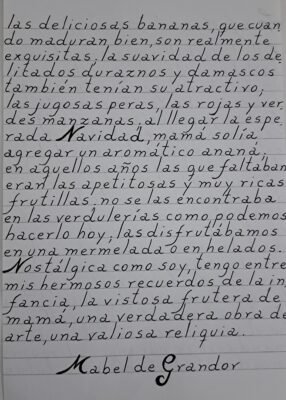 las deliciosas bananas, que cuan
do maduran bien, son realmente
exquisitas, la suavidad de los de
litados duraznos y damascos
también tenían su atractivo,
las jugosas peras, las rojas y ver
des manzanas, al llegar la espe
rada Navidad, mamá solía
agregar un aromático ananá,
en aquellos años las que faltaban
eran las apetitosas y muy ricas
frutillas, no se las encontraba
en las verdulerías como podemos
hacerlo hoy, las disfrutábamos
en una mermelada o en helados.
Nostálgica como soy, tengo entre
mis hermosos recuerdos de la in
fancia, la vistosa frutera de
mamá, una verdadera obra de
arte, una valiosa reliquia.
Mabel de Grandor